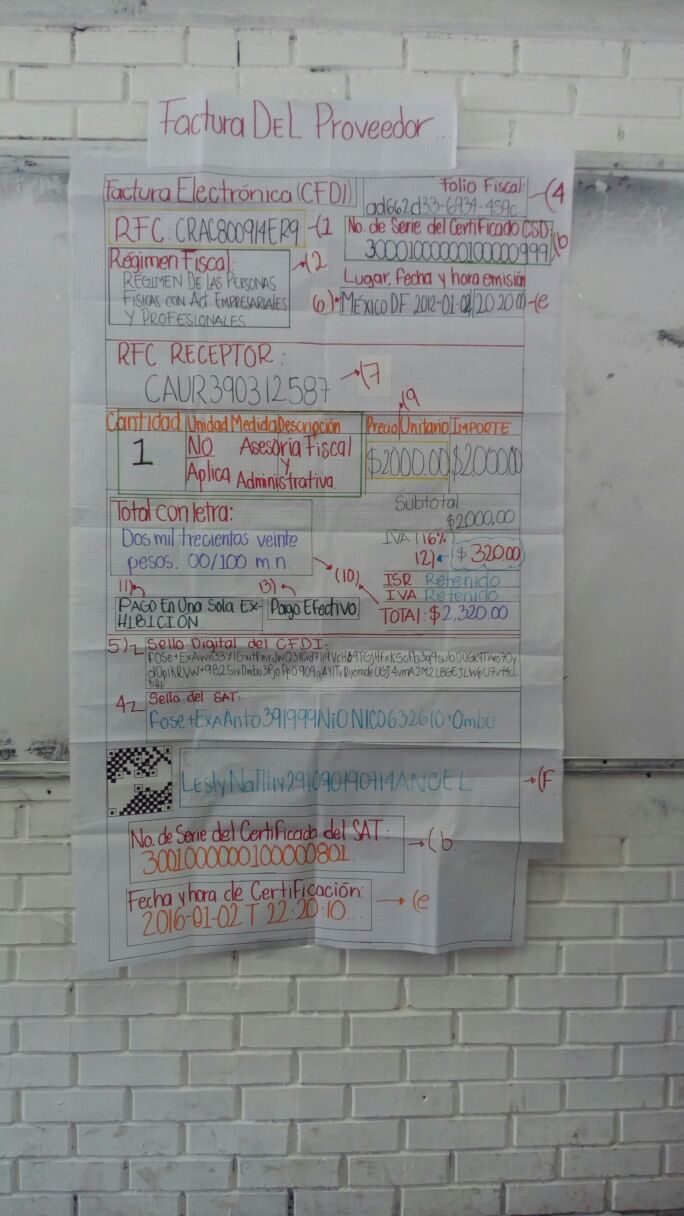 Factura DEL Proveedor...
Factura Electrónica (CFDI)
Folio Fiscal: (4
ad662d33-6934-459c
RFC: CRAC800914ER9 (1
No. de Serie del Certificado CSD:
30001000000100000999 (b
Régimen Fiscal: (2
RÉGIMEN DE LAS PERSONAS
FISICAS CON Act EMPRESARIALES
Y PROFESIONALES
Lugar, fecha y hora emisión
6) MÉXICO DF 2012-01-02 20:20:00 (e
RFC RECEPTOR:
CAUR390312587 (7
(9
Cantidad Unidad Medida Descripción Precio Unitario IMPORTE
1 NO Aplica Asesoria Fiscal y Administrativa $2000.00 $2,000.00
Subtotal
$2000,00
Total con letra:
Dos mil trecientos veinte
pesos. 00/100 m n.
(10)
IVA (16%)
12) $ 320.00
ISR Retenido
IVA Retenido
TOTAL: $2,320.00
11) 13)
PAGO En Una Sola EX-
HIBICIÓN. Pago Efectivo.
5) Sello Digital del CFDI:
4 Sello del SAT:
Fose+ExAAnto391999NiONICO632610+Ombu
ANGEL (F
No. de Serie del Certificado del SAT:
3001000000100000801. (b.
Fecha y hora de Certificación:
2016-01-02 T 22:20:10... (e